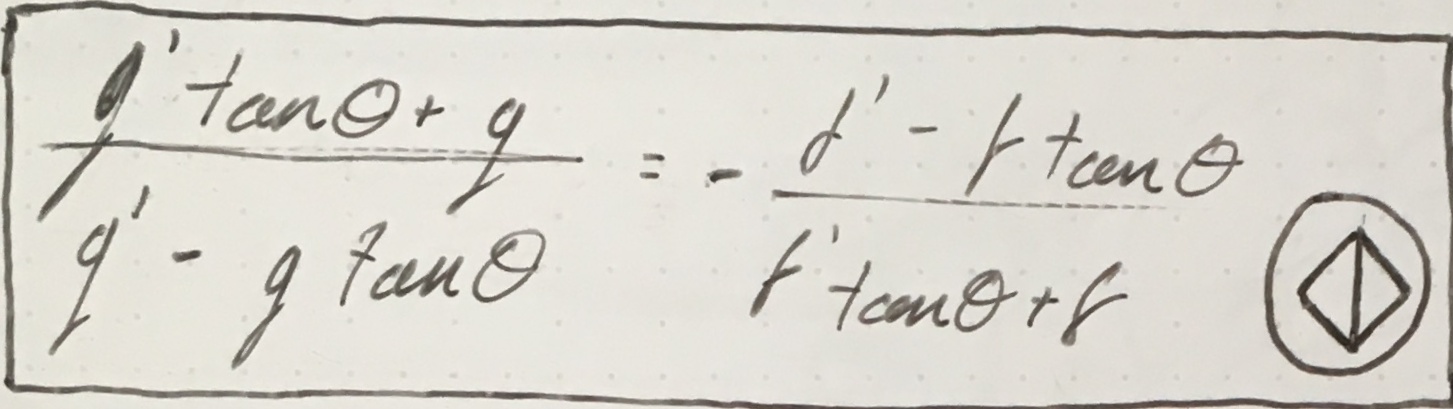 g' tanθ + g / g' - g tanθ = - f' - f tanθ / f' tanθ + f